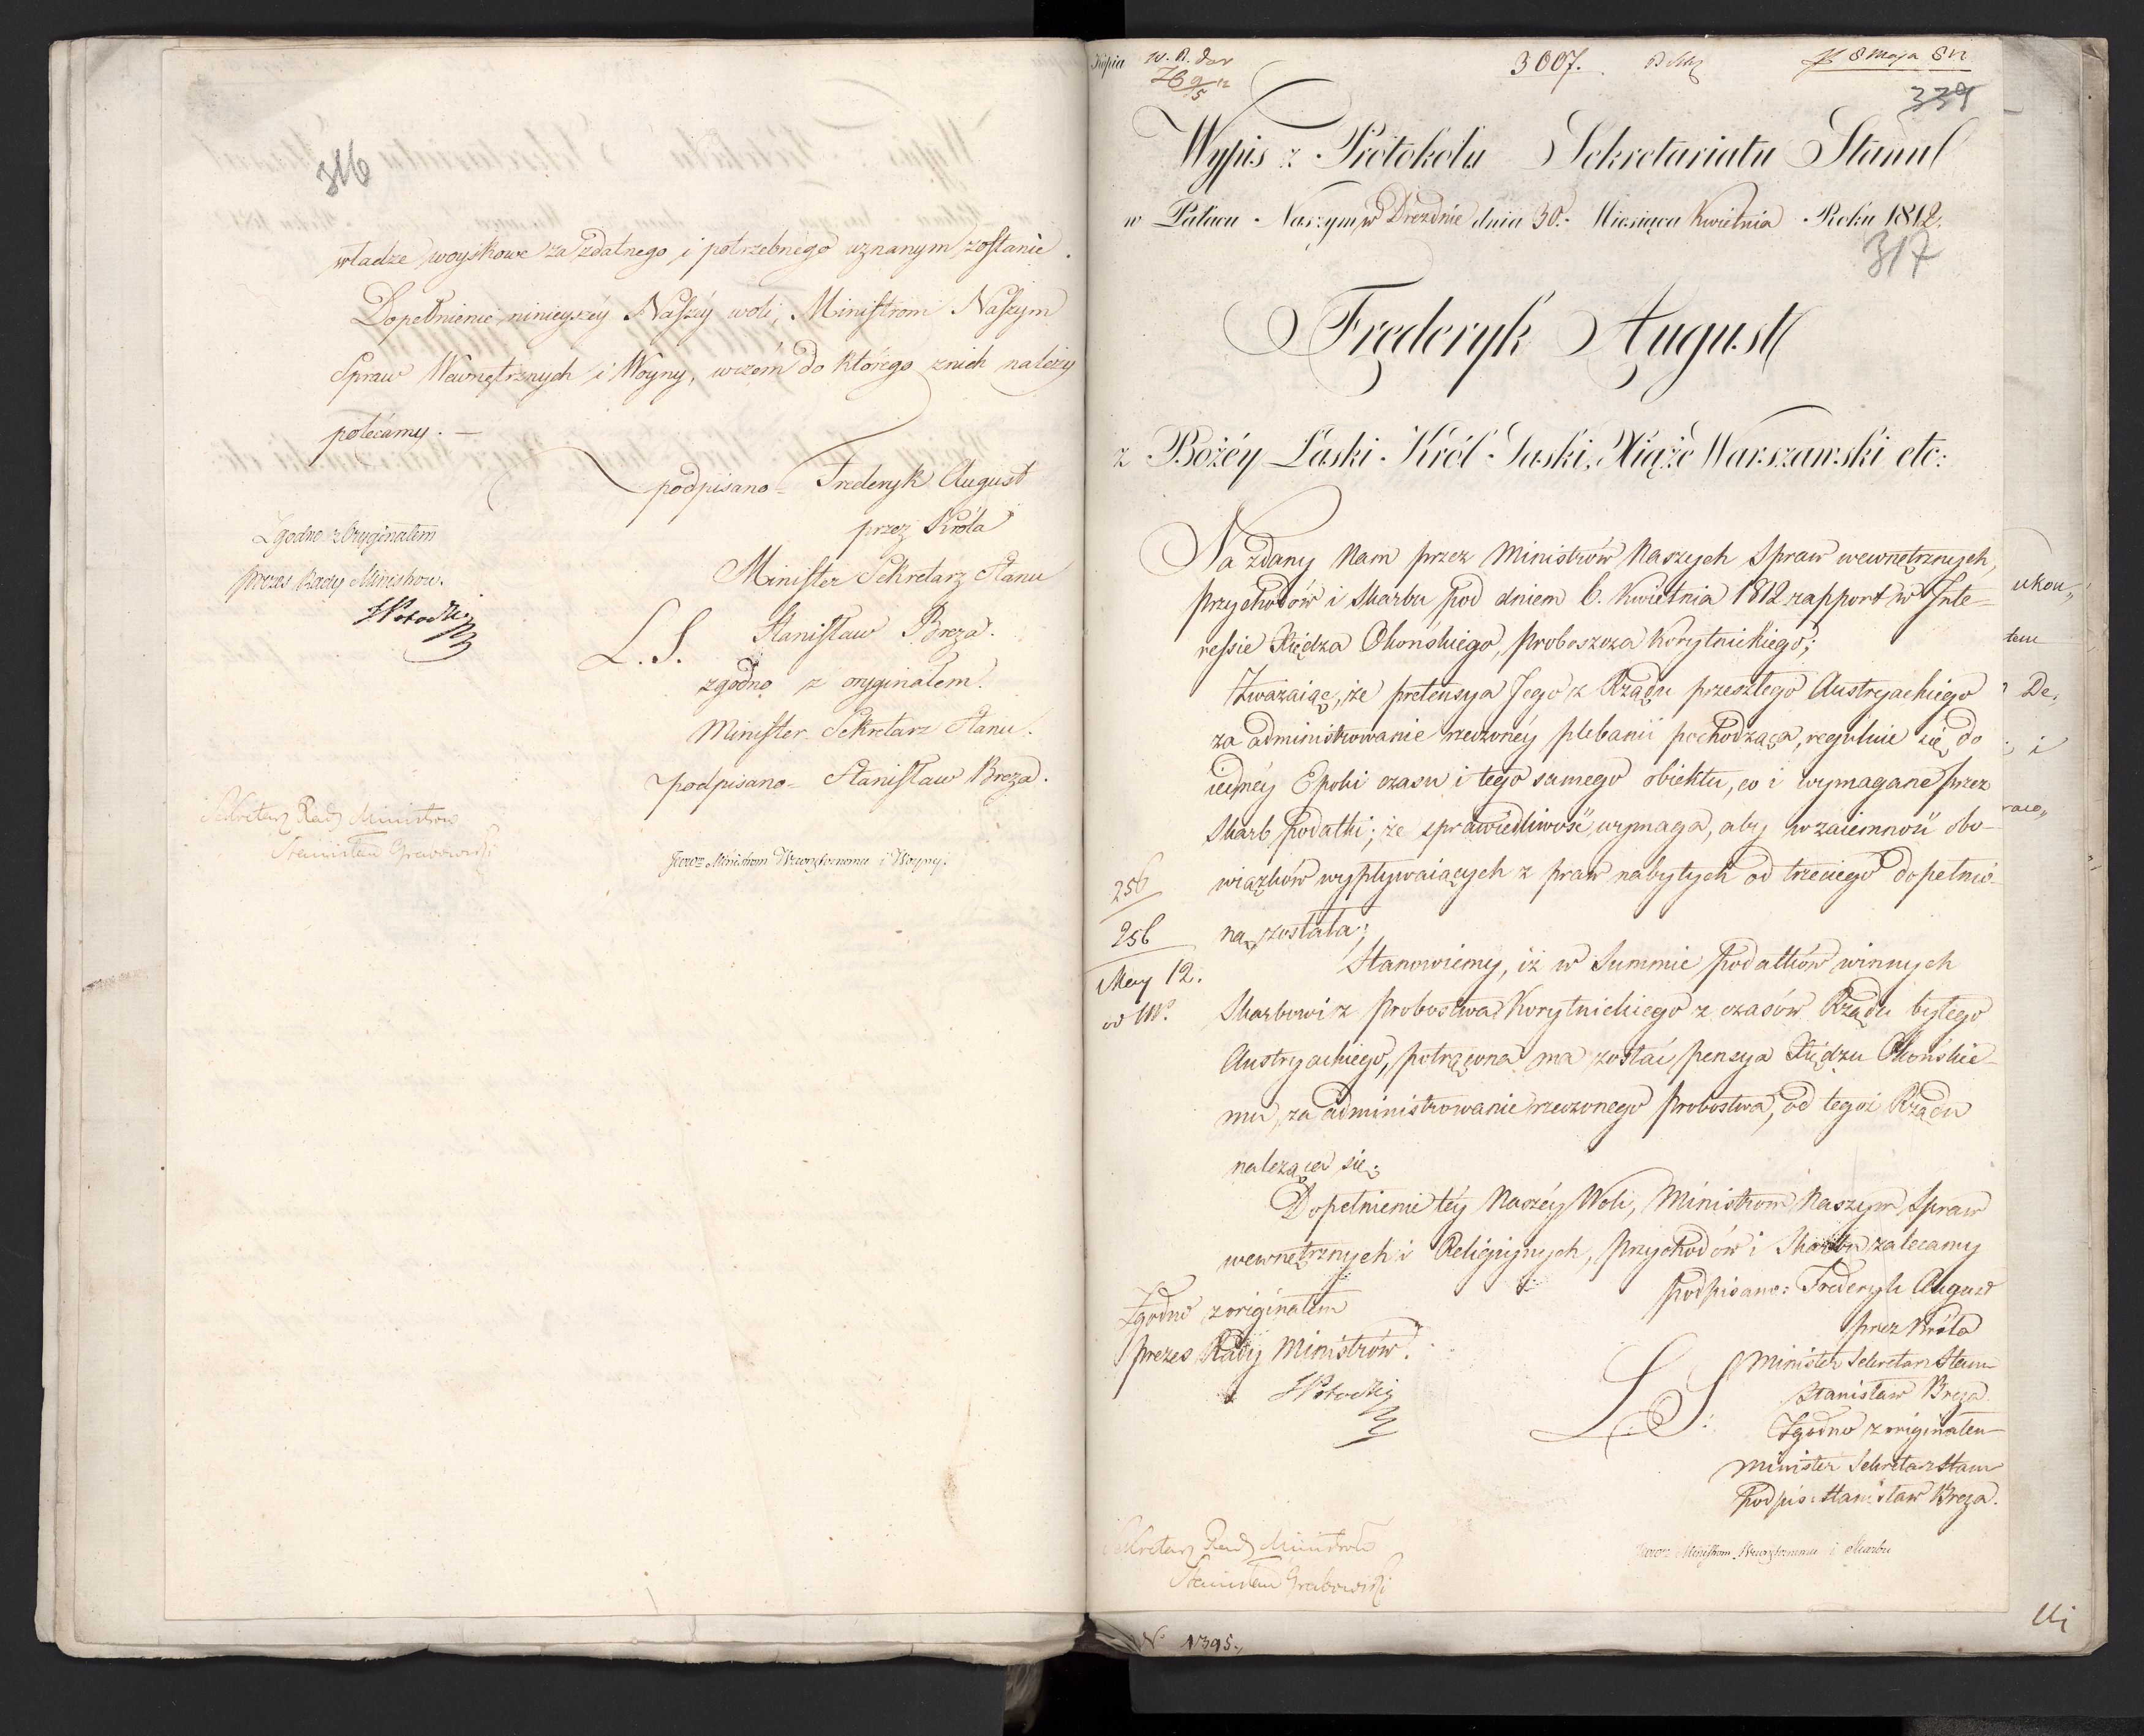 316
władze woyskowe za zdatnego i potrzebnego uznanym zostanie.
Dopełnienie ninieyszéy Naszéy woli, Ministrom Naszym
Spraw Wewnętrznych i Woyny, wczem do którego znich należy
polecamy. —
podpisano = Frederyk August
przez Króla
Minister Sekretarz Stanu
L. S. Stanisław Breza.
zgodno z oryginałem.
Minister Sekretarz Stanu.
podpisano = Stanisław Breza.
Zgodno z Oryginałem
Prezes Rady Ministrow.
Sekretarz Rady Ministrow
Stanisław Grabowski
Ministrom Wewnętrznemu i Woyny.
Kopia
3007.
8 Maja 812
339
Wypis z Protokołu Sekretariatu Stanu
w Pałacu Naszym w Dreźnie dnia 30. Miesiąca Kwietnia Roku 1812.
317
Fręderyk August
z Bożéy Łaski Król Saski, Xiążę Warszawski etc:
Na zdany Nam przez Ministrów Naszych Spraw wewnętrznych,
Przychodów i Skarbu pod dniem 6. Kwietnia 1812 rapport w Inte=
ressie Xiędza Okońskiego, Proboszcza Korytnickiego;
Zważaiąc, że pretensya Jego z Rządu przeszłego Austryackiego
za administrowanie rzeczonéy plebanii pochodząca, reguluie się do
iednéy Epoki czasu i tego samego obiektu, co i wymagane przez
Skarb podatki; że sprawiedliwość wymaga, aby wzaiemność obo-
wiązków wypływaiących z praw nabytych od trzeciego dopełnio-
ną została;
Stanowiemy, iż w Summie podatków winnych
Skarbowi z Probostwa Korytnickiego z czasów Rządu byłego
Austryackiego, potrącona ma zostać pensya Xiędzu Okońskie-
mu, za administrowanie rzeczonego Probostwa, od tegoż Rządu
należąca się.
Dopełnienie téy Naszéy Woli, Ministrom Naszym Spraw
wewnętrznych i Religiynych, Przychodów i Skarbu zalecamy
podpisano: Frederyk August
przez Króla
Minister Sekretarz Stanu
Stanisław Breza.
L S:
Zgodno z originałem
Minister Sekretarz Stanu
podpis: Stanisław Breza.
Zgodno z originałem
Prezes Rady Ministrów.
256
256
May 12.
Sekretarz Rady Ministrow
Stanisław Grabowski
Ministrom Wewnętrznemu i Skarbu
ukon„
tem
De.
i
N. 1395.